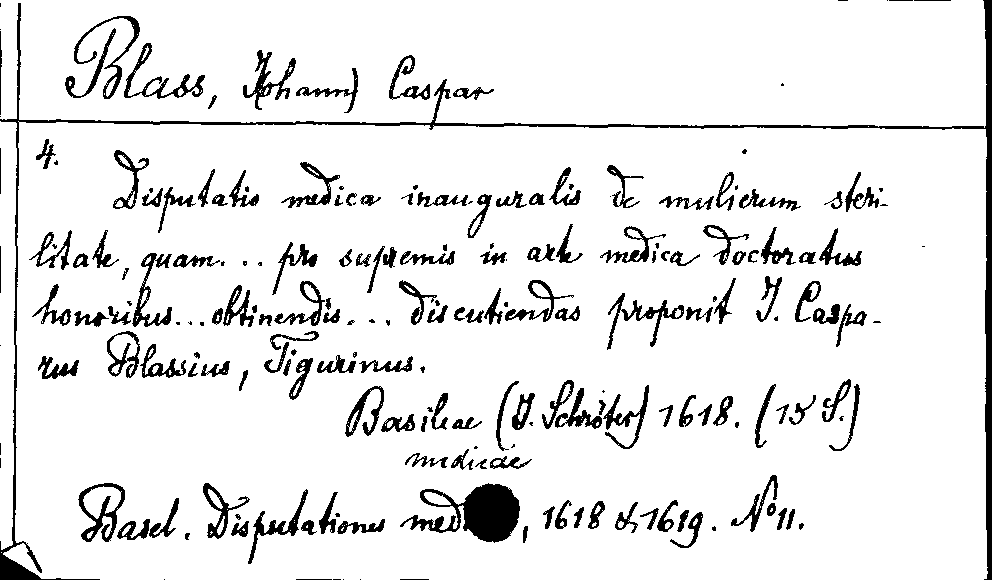 Blass, J(ohann) Caspar
4.
Disputatio medica inauguralis de mulierum steri-
litate, quam... pro supremis in arte medica doctoratus
honoribus... obtinendis... discutiendas proponit J. Caspa-
rus Blassius, Tigurinus.
Basileae (J. Schröter) 1618. (15 S.)
medicae
Basel. Disputationes med , 1618 & 1619. No 11.